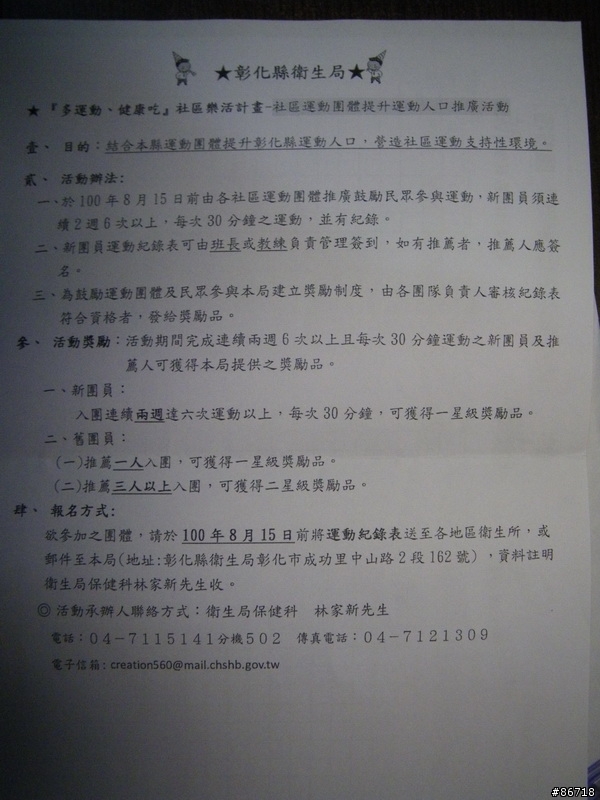 ★彰化縣衛生局★
★『多運動、健康吃』社區樂活計畫-社區運動團體提升運動人口推廣活動
壹、 目的：結合本縣運動團體提升彰化縣運動人口，營造社區運動支持性環境。
貳、 活動辦法:
一、於100年8月15日前由各社區運動團體推廣鼓勵民眾參與運動，新團員須連
續2週6次以上，每次30分鐘之運動，並有紀錄。
二、新團員運動紀錄表可由班長或教練負責管理簽到，如有推薦者，推薦人應簽
名。
三、為鼓勵運動團體及民眾參與本局建立獎勵制度，由各團隊負責人審核紀錄表
符合資格者，發給獎勵品。
參、 活動獎勵：活動期間完成連續兩週6次以上且每次30分鐘運動之新團員及推
薦人可獲得本局提供之獎勵品。
一、新團員：
入團連續兩週達六次運動以上，每次30分鐘，可獲得一星級獎勵品。
二、舊團員：
(一)推薦一人入團，可獲得一星級獎勵品。
(二)推薦三人以上入團，可獲得二星級獎勵品。
肆、 報名方式:
欲參加之團體，請於100年8月15日前將運動紀錄表送至各地區衛生所，或
郵件至本局(地址:彰化縣衛生局彰化市成功里中山路2段162號)，資料註明
衛生局保健科林家新先生收。
◎活動承辦人聯絡方式：衛生局保健科 林家新先生
電話：04-7115141分機502 傳真電話：04-7121309
電子信箱: creation560@mail.chshb.gov.tw
#86718